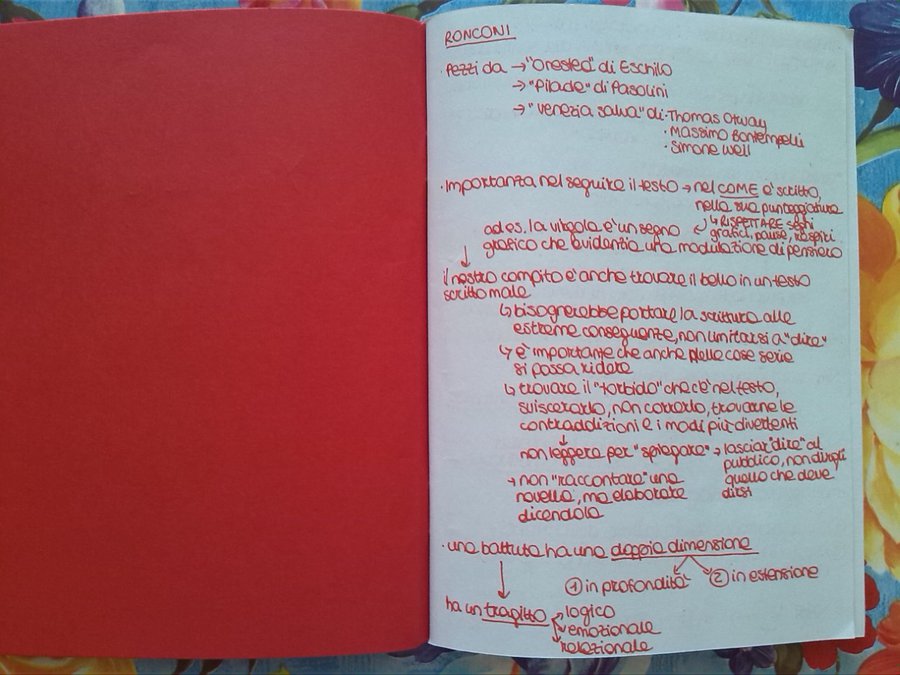 RONCONI
Pezzi da → "Orestea" di Eschilo
→ "Pilade" di Pasolini
→ "Venezia salva" di · Thomas Otway
· Massimo Bontempelli
· Simone Weil
· Importanza nel seguire il testo → nel COME è scritto,
nella sua punteggiatura
↳ RISPETTARE segni
grafici, pause, respiri
ad es. la virgola è un segno
grafico che evidenzia una modulazione di pensiero
il nostro compito è anche trovare il bello in un testo
scritto male
↳ bisognerebbe portare la scrittura alle
estreme conseguenze, non limitarsi a "dire"
↳ è importante che anche nelle cose serie
si possa ridere
↳ trovare il "torbido" che c'è nel testo,
sviscerarlo, non correrlo, trovarne le
contraddizioni e i modi più divertenti
non leggere per "spiegare" → lasciar "dire" al
pubblico, non dirgli
quello che deve
dirsi
→ non "raccontare" una
novella, ma elaborare
dicendola
· una battuta ha una doppia dimensione
① in profondità ② in estensione
ha un tragitto logico
emozionale
relazionale